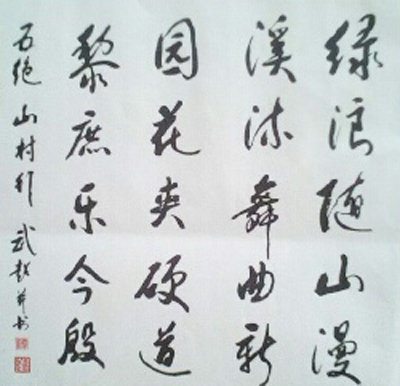 绿浪随山漫
溪流舞曲新
园花夾硬道
黎庶乐今殷
五绝 山村行 武 并书